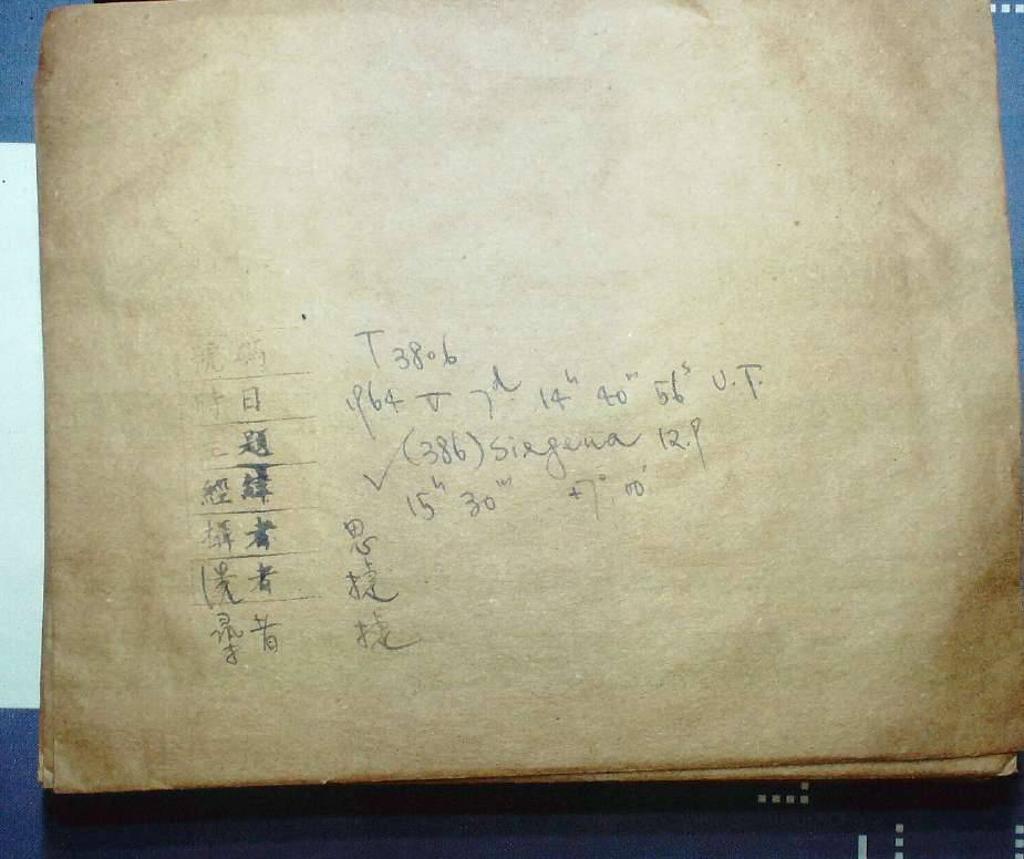 號碼 T 3806
時日 1964 V 7ᵈ 14ʰ 40ᵐ 56ˢ U.T.
題 (386) Siegena 12.9
經緯 ✓ 15ʰ 30ᵐ +7° 00'
攝者 思
洗者
者